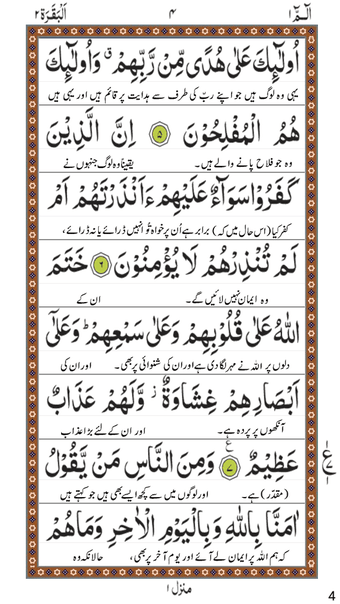 الٓـمّٓ ۱ ۴ اَلْبَقَرَة ۲
اُولٰٓئِكَ عَلٰى هُدًى مِّنْ رَّبِّهِمْ ۗ وَاُولٰٓئِكَ
یہی وہ لوگ ہیں جو اپنے ربّ کی طرف سے ہدایت پر قائم ہیں اور یہی ہیں
هُمُ الْمُفْلِحُوْنَ ۵ اِنَّ الَّذِيْنَ
وہ جو فلاح پانے والے ہیں۔ یقیناً وہ لوگ جنہوں نے
كَفَرُوْا سَوَآءٌ عَلَيْهِمْ ءَاَنْذَرْتَهُمْ اَمْ
کفر کیا (اس حال میں کہ) برابر ہے اُن پر خواہ تُو انہیں ڈرائے یا نہ ڈرائے،
لَمْ تُنْذِرْهُمْ لَا يُؤْمِنُوْنَ ۶ خَتَمَ
وہ ایمان نہیں لائیں گے۔ ان کے
اللّٰهُ عَلٰى قُلُوْبِهِمْ وَعَلٰى سَمْعِهِمْ ؕ وَعَلٰٓى
دلوں پر اللہ نے مہر لگا دی ہے اور ان کی شنوائی پر بھی۔ اور ان کی
اَبْصَارِهِمْ غِشَاوَةٌ ؗ وَّلَهُمْ عَذَابٌ
آنکھوں پر پردہ ہے۔ اور ان کے لئے بڑا عذاب
عَظِيْمٌ ۷ ع وَمِنَ النَّاسِ مَنْ يَّقُوْلُ
(مقدر) ہے۔ اور لوگوں میں سے کچھ ایسے بھی ہیں جو کہتے ہیں
اٰمَنَّا بِاللّٰهِ وَبِالْيَوْمِ الْاٰخِرِ وَمَا هُمْ
کہ ہم اللہ پر ایمان لے آئے اور یومِ آخر پر بھی، حالانکہ وہ
منزل ۱
4